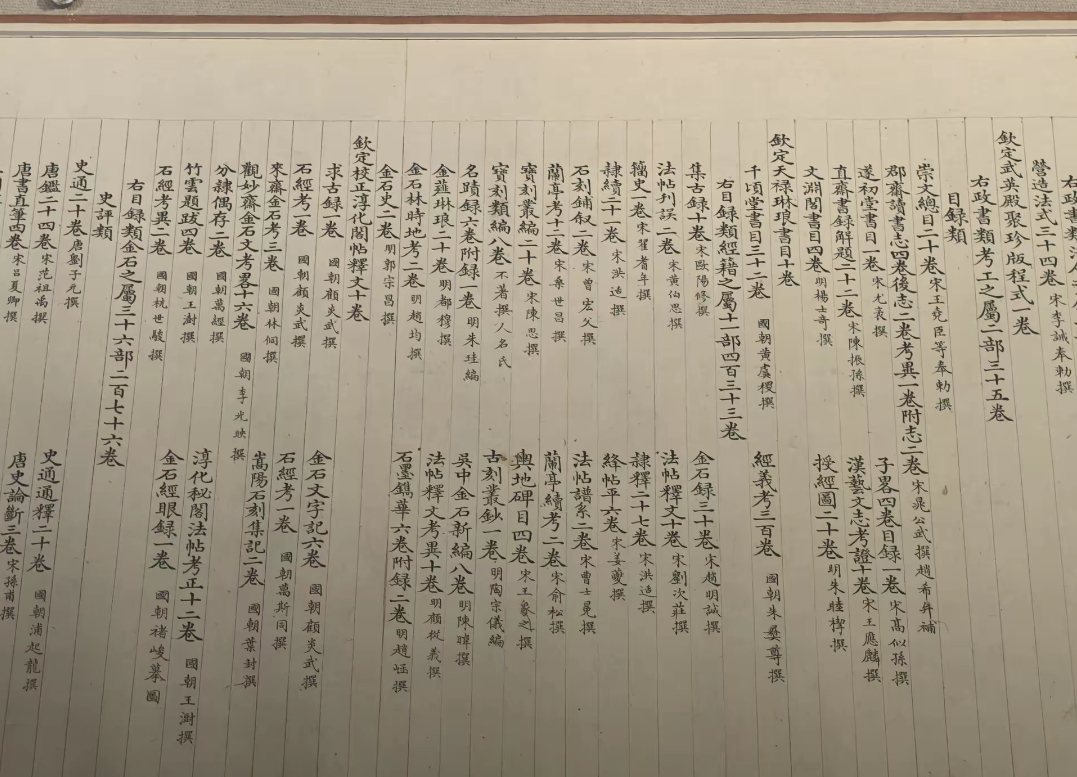 右政書類
營造法式三十四卷 宋李誡奉勅撰
欽定武英殿聚珍版程式一卷
右政書類考工之屬二部三十五卷
目録類
崇文總目二十卷 宋王堯臣等奉勅撰
郡齋讀書志四卷後志二卷考異一卷附志二卷 宋晁公武撰趙希弁補
遂初堂書目一卷 宋尤袤撰
子畧四卷目録一卷 宋高似孫撰
直齋書録解題二十二卷 宋陳振孫撰
漢藝文志考證十卷 宋王應麟撰
文淵閣書目四卷 明楊士奇撰
授經圖二十卷 明朱睦㮮撰
欽定天禄琳琅書目十卷
千頃堂書目三十二卷 國朝黃虞稷撰
經義考三百卷 國朝朱彝尊撰
右目録類經籍之屬十一部四百三十三卷
集古録十卷 宋歐陽修撰
金石録三十卷 宋趙明誠撰
法帖刋誤二卷 宋黃伯思撰
法帖釋文十卷 宋劉次莊撰
籀史一卷 宋翟耆年撰
隸釋二十七卷 宋洪适撰
隸續二十一卷 宋洪适撰
絳帖平六卷 宋姜夔撰
石刻鋪叙二卷 宋曾宏父撰
法帖譜系二卷 宋曹士冕撰
蘭亭考十二卷 宋桑世昌撰
蘭亭續考二卷 宋俞松撰
寶刻叢編二十卷 宋陳思撰
輿地碑目四卷 宋王象之撰
寶刻類編八卷 不著撰人名氏
古刻叢鈔一卷 明陶宗儀編
名蹟録六卷附録一卷 明朱珪編
吳中金石新編八卷 明陳暐撰
金薤琳琅二十卷 明都穆撰
法帖釋文考異十卷 明顧從義撰
金石林時地考二卷 明趙均撰
石墨鐫華六卷附録二卷 明趙崡撰
金石史二卷 明郭宗昌撰
欽定校正淳化閣帖釋文十卷
求古録一卷 國朝顧炎武撰
金石文字記六卷 國朝顧炎武撰
石經考一卷 國朝顧炎武撰
石經考一卷 國朝萬斯同撰
來齋金石考三卷 國朝林侗撰
嵩陽石刻集記二卷 國朝葉封撰
觀妙齋金石文考畧十六卷 國朝李光暎撰
分隸偶存二卷 國朝萬經撰
淳化秘閣法帖考正十二卷 國朝王澍撰
竹雲題跋四卷 國朝王澍撰
金石經眼録一卷 國朝褚峻摹圖
石經考異二卷 國朝杭世駿撰
右目録類金石之屬三十六部二百七十六卷
史評類
史通二十卷 唐劉子元撰
史通通釋二十卷 國朝浦起龍撰
唐鑑二十四卷 宋范祖禹撰
唐史論斷三卷 宋孫甫撰
唐書直筆四卷 宋呂夏卿撰